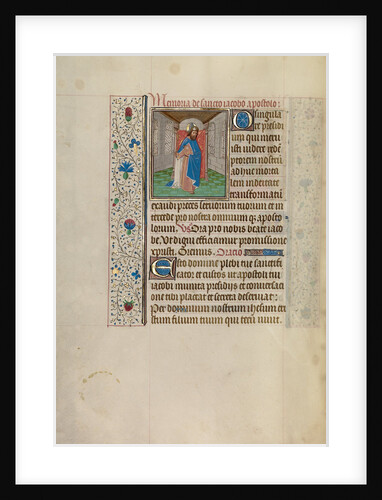 Memoria de sancto iacobo apostolo:
O singula
re presidi
um qui meru
isti videre rede
torem nostrū
adhuc morta
lem in deitate
transformatū
exaudi preces seruorum tuorum et in
tercede pro nostra omnium q; aposto
lorum. Vs Ora pro nobis beate iaco
be. Ut digni efficiamur promissione
xpristi. Oremus. Oratio
Esto domine plebi tue sanctifi
cator: et custos ut apostoli tui
iacobi munita presidijs et conuersaci
one tibi placeat et secreta deseruiat:
Per dominum nostrum ihesum cri
stum filium tuum qui tecū uiuit.